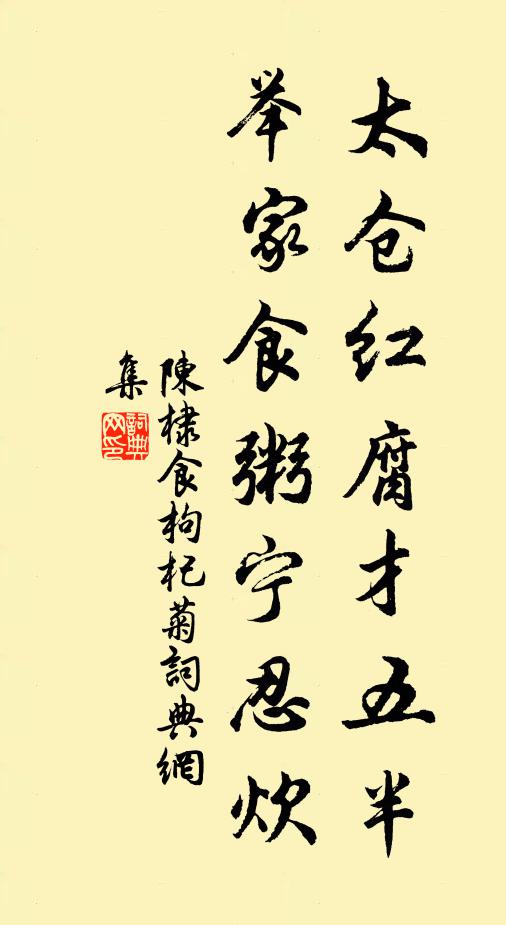 太仓红腐才五半
举家食粥宁忍炊
陳棣食枸杞菊詞典網
集
詞典
网印